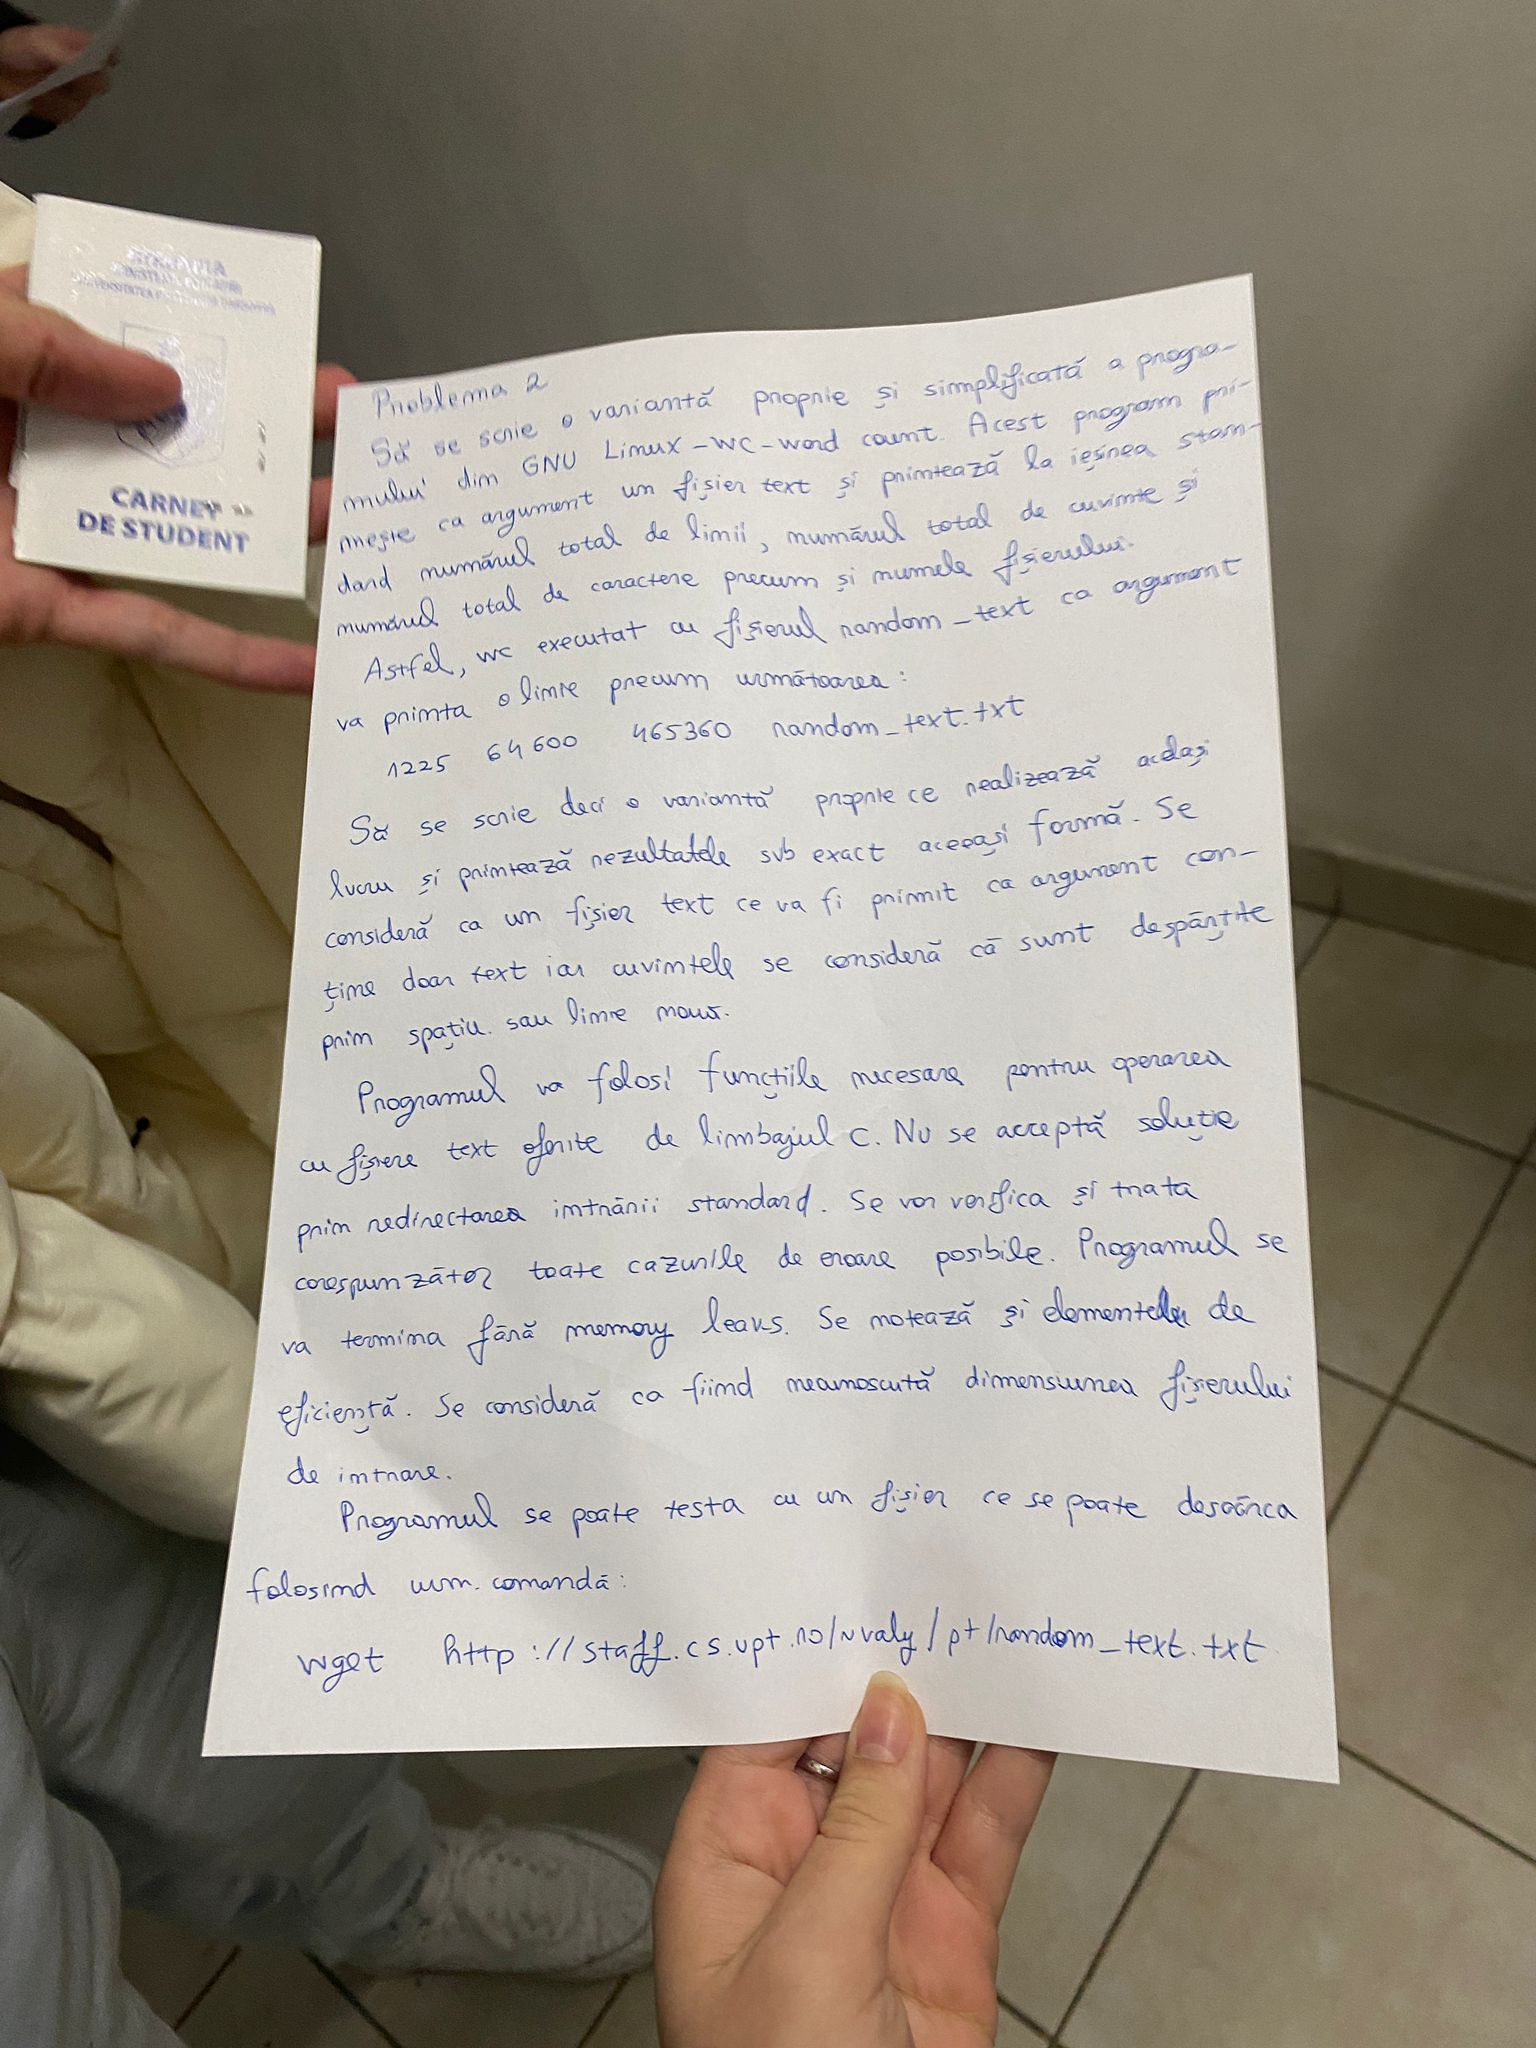 CARNET
DE STUDENT
Problema 2
Să se scrie o variantă proprie și simplificată a progra-
mului din GNU Linux - wc - word count. Acest program pri-
mește ca argument un fișier text și printează la ieșirea stan-
dard numărul total de linii, numărul total de cuvinte și
numărul total de caractere precum și numele fișierului.
Astfel, wc executat cu fișierul random_text ca argument
va printa o linie precum următoarea:
1225 64600 465360 random_text.txt
Să se scrie deci o variantă proprie ce realizează același
lucru și printează rezultatele sub exact aceeași formă. Se
consideră ca un fișier text ce va fi primit ca argument con-
ține doar text iar cuvintele se consideră că sunt despărțite
prin spațiu sau linie nouă.
Programul va folosi funcțiile necesare pentru operarea
cu fișiere text oferite de limbajul C. Nu se acceptă soluție
prin redirectarea intrării standard. Se vor verifica și trata
corespunzător toate cazurile de eroare posibile. Programul se
va termina fără memory leaks. Se notează și elementele de
eficiență. Se consideră ca fiind neamoscută dimensiunea fișierului
de intrare.
Programul se poate testa cu un fișier ce se poate descărca
folosind urm. comandă:
wget http://staff.cs.upt.ro/~valy/pt/random_text.txt